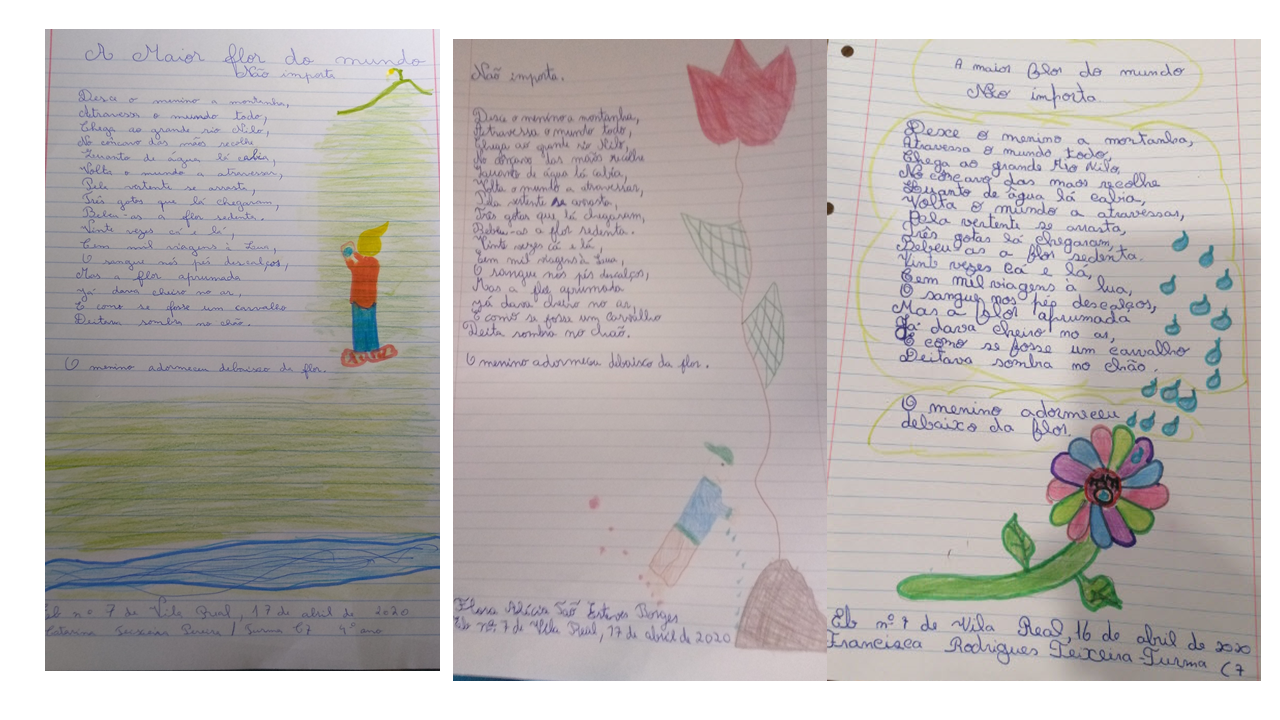 A Maior flor do mundo
Não importa
Desce o menino a montanha,
Atravessa o mundo todo,
Chega ao grande rio Nilo,
No côncavo das mãos recolhe
Quanto de água lá cabia,
Volta o mundo a atravessar,
Pela vertente se arrasta,
Três gotas que lá chegaram,
Bebeu-as a flor sedenta.
Vinte vezes cá e lá,
Cem mil viagens à Lua,
O sangue nos pés descalços,
Mas a flor aprumada
Já dava cheiro no ar,
E como se fosse um carvalho
Deitava sombra no chão.
O menino adormeceu debaixo da flor.
Eb nº 7 de Vila Real, 17 de abril de 2020
Catarina Teixeira Pereira / Turma C7 4º ano
Não importa.
Desce o menino a montanha,
Atravessa o mundo todo,
Chega ao grande rio Nilo,
No côncavo das mãos recolhe
Quanto de água lá cabia,
Volta o mundo a atravessar,
Pela vertente se arrasta,
Três gotas que lá chegaram,
Bebeu-as a flor sedenta.
Vinte vezes cá e lá,
Cem mil viagens à Lua,
O sangue nos pés descalços,
Mas a flor aprumada
Já dava cheiro no ar,
E como se fosse um carvalho
Deita sombra no chão.
O menino adormeceu debaixo da flor.
Flora Alícia São Esteves Borges
Eb nº 7 de Vila Real, 17 de abril de 2020
A maior flor do mundo
Não importa
Desce o menino a mortanha,
Atravessa o mundo todo,
Chega ao grande Rio Nilo,
No côncavo das maos recolhe
Quanto de água lá cabia,
Volta o mundo a atravessas,
Pela vertente se arrasta,
Três gotas lá chegaram,
Bebeu as a flor sedenta.
Vinte vezes cá e lá,
Cem mil viagens à lua,
O sangue nos pés descalços,
Mas a flor aprumada
Já dava cheiro no ar,
E como se fosse um carvalho
Deitava sombra no chão.
O menino adormeceu
debaixo da flor.
Eb nº 7 de Vila Real, 16 de abril de 2020
Francisca Rodrigues Teixeira-Turma C7